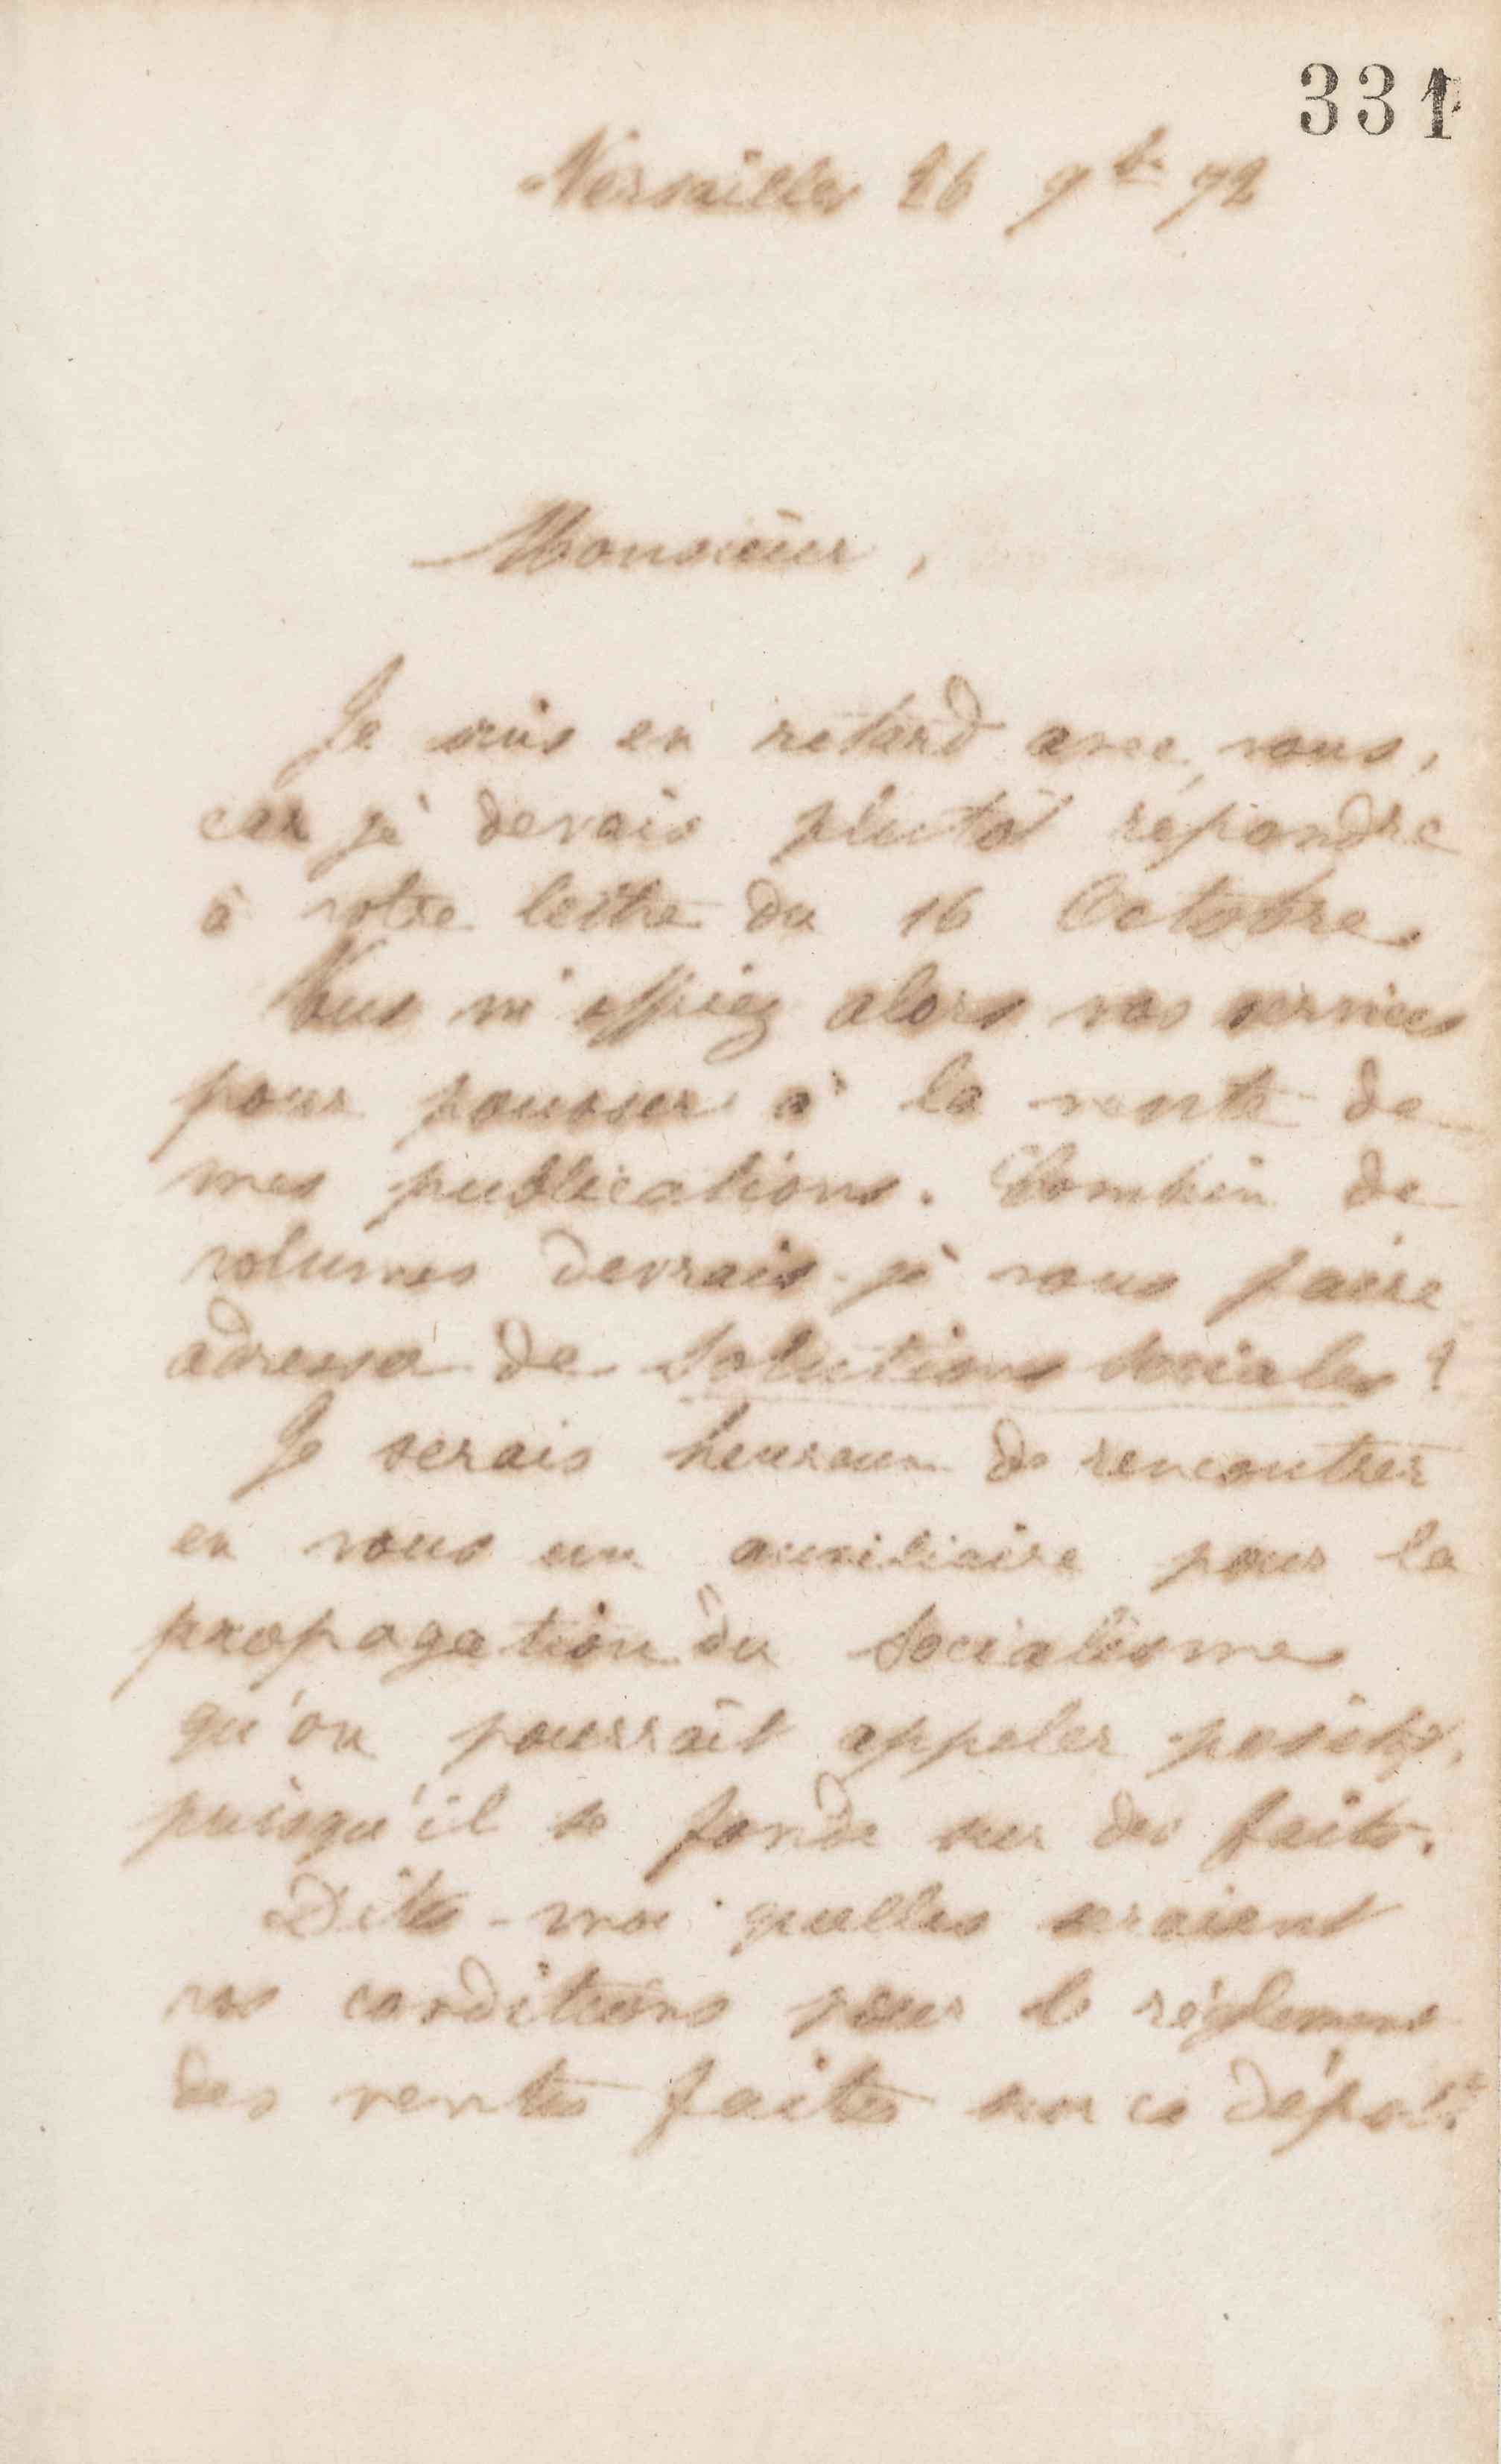 331
Versailles 26 9bre 72
Monsieur,
Je suis en retard avec vous,
car je devais plutôt répondre
à votre lettre du 16 Octobre.
Vous m'offriez alors vos services
pour pousser à la vente de
mes publications. Combien de
volumes devrais-je vous faire
adresser de Solutions sociales ?
Je serais heureux de rencontrer
en vous un auxiliaire pour la
propagation du Socialisme
qu'on pourrait appeler positif,
puisqu'il se fonde sur des faits.
Dites-moi quelles seraient
vos conditions pour le règlement
des ventes faites sur ce dépôt.